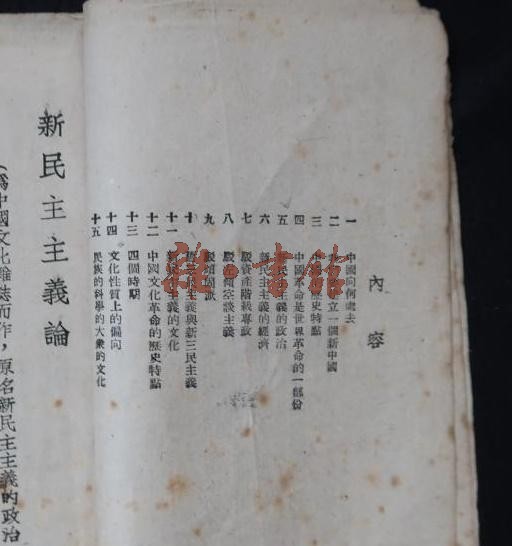 內容
一 中國向何處去
二 立一個新中國
三 中國 歷史特點
四 中國革命是世界革命的一部份
五 新民主主義的政治
六 新民主主義的經濟
七 駁資產階級專政
八 駁 空談主義
九 駁頑固派
十 三民主義與新三民主義
十一 主義的文化
十二 中國文化革命的歷史特點
十三 四個時期
十四 文化性質上的偏向
十五 民族的科學的大衆的文化
新民主主義論
(爲中國文化雜誌而作,原名新民主主義的政治
書館